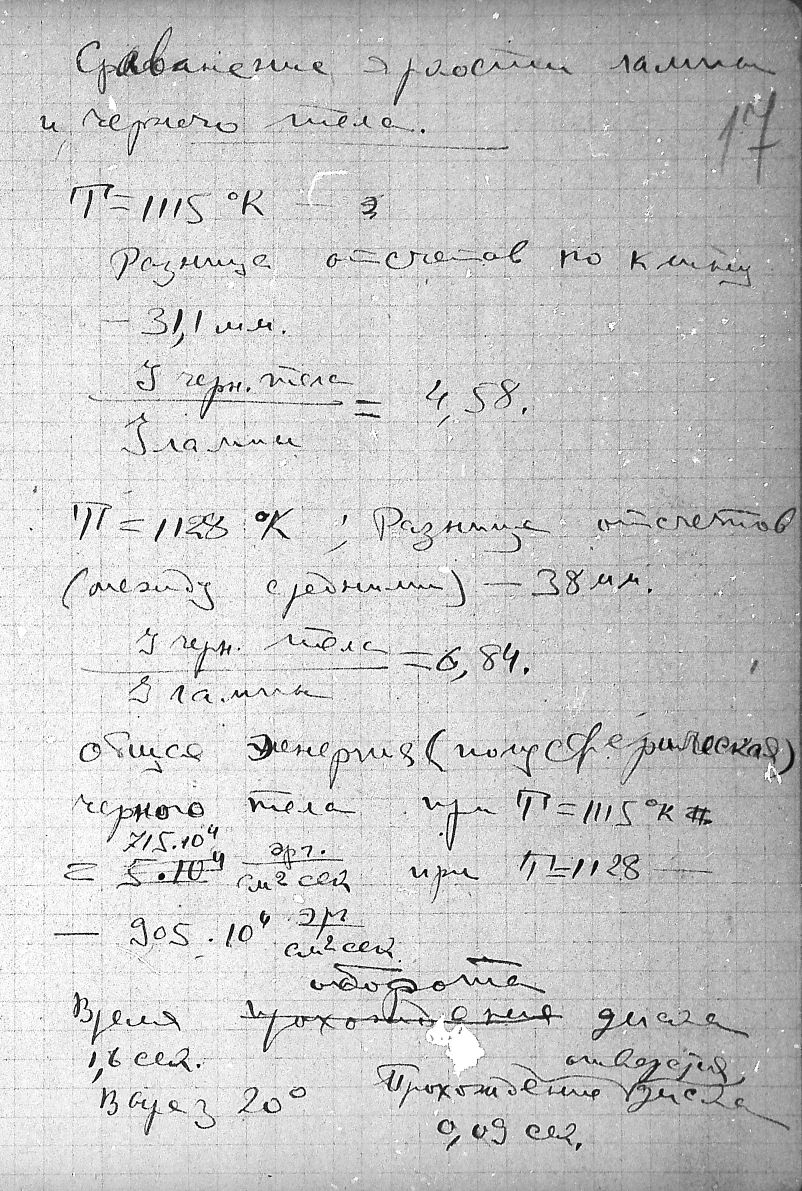 Сравнение яркости лампы
и черного тела.
17
T=1115 °K —
Разница отсчетов по клину
— 31,1 мм.
J черн. тела
= 4,58.
J лампы
T=1128 °K ; Разница отсчетов
(между средними) — 38 мм.
J черн. тела
=6,84.
J лампы
общая энергия (полусферическая)
черного тела при T=1115 °K
715.10⁴
= 5.10⁴ эрг. / см² сек при T=1128 —
— 905.10⁴ эрг / см² сек.
оборота
Время прохождения диска
1,6 сек.
отверстия
Вырез 20° Прохождение диска
0,09 сек.